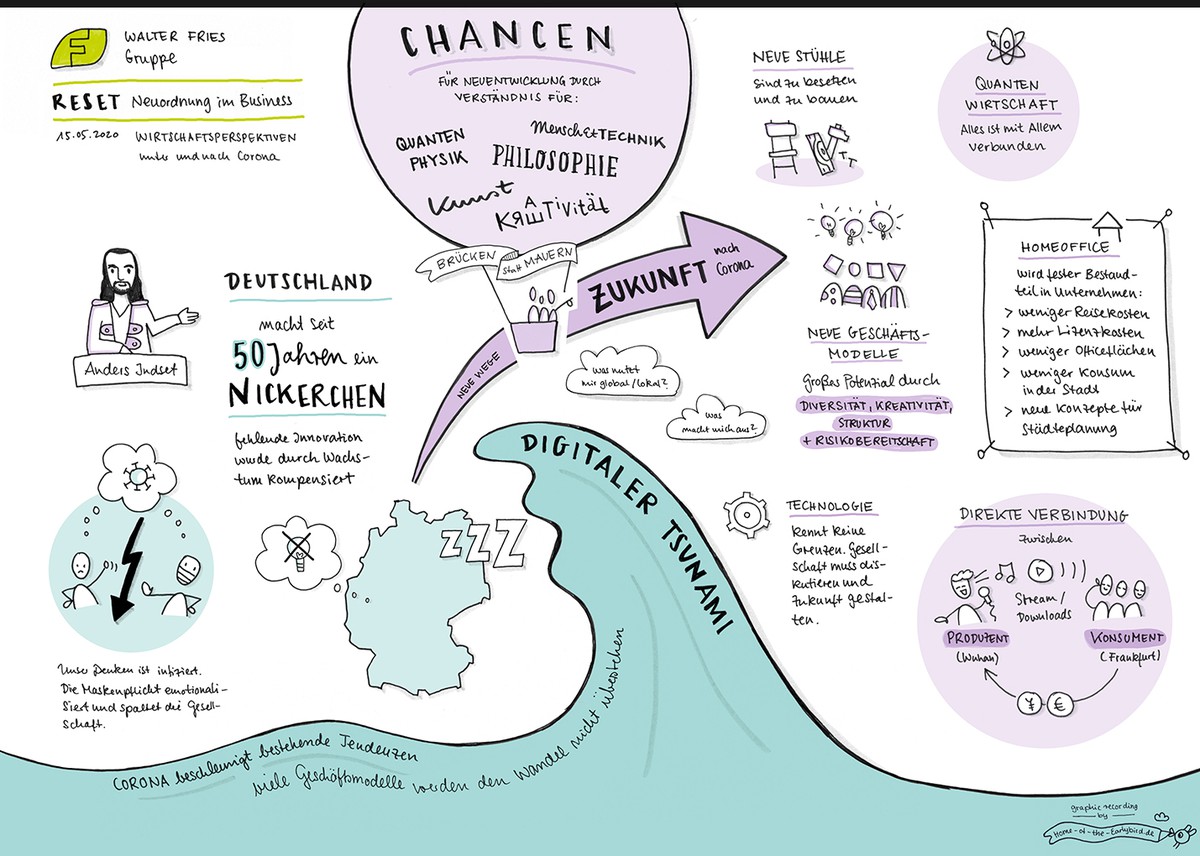 F
WALTER FRIES
Gruppe
RESET Neuordnung im Business
15.05.2020 WIRTSCHAFTSPERSPEKTIVEN
unter und nach Corona
CHANCEN
FÜR NEUENTWICKLUNG DURCH
VERSTÄNDNIS FÜR:
QUANTEN
PHYSIK
Mensch & TECHNIK
PHILOSOPHIE
Kunst
KREATIVITÄT
BRÜCKEN statt MAUERN
NEUE WEGE
ZUKUNFT nach
Corona
was nutzt
mir global/lokal?
was
macht mich aus?
NEUE STÜHLE
sind zu besetzen
und zu bauen
QUANTEN
WIRTSCHAFT
Alles ist mit Allem
verbunden
Anders Indset
DEUTSCHLAND
macht seit
50 Jahren ein
NICKERCHEN
fehlende Innovation
wurde durch Wachs-
tum kompensiert
ZZZ
NEUE GESCHÄFTS-
MODELLE
Großes Potenzial durch
DIVERSITÄT, KREATIVITÄT,
STRUKTUR
+ RISIKOBEREITSCHAFT
HOMEOFFICE
wird fester Bestand-
teil in Unternehmen:
> weniger Reisekosten
> mehr Lizenzkosten
> weniger Officeflächen
> weniger Konsum
in der Stadt
> neue Konzepte für
Städteplanung
Unser Denken ist infiziert.
Die Maskenpflicht emotionali-
siert und spaltet die Gesell-
schaft.
DIGITALER TSUNAMI
TECHNOLOGIE
kennt keine
Grenzen. Gesell-
schaft muss dis-
kutieren und
Zukunft gestal-
ten.
DIREKTE VERBINDUNG
zwischen
Stream/
Downloads
PRODUZENT
(Wuhan)
KONSUMENT
(Frankfurt)
¥ €
CORONA beschleunigt bestehende Tendenzen
viele Geschäftsmodelle werden den Wandel nicht überstehen
graphic recording
by
Home-of-the-Earlybird.de